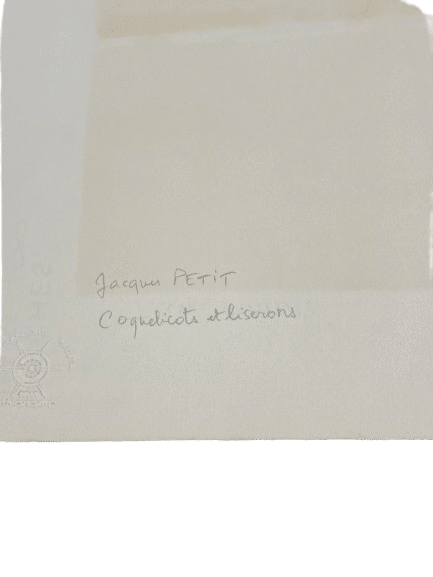 Jacques PETIT
Coquelicots et liserons